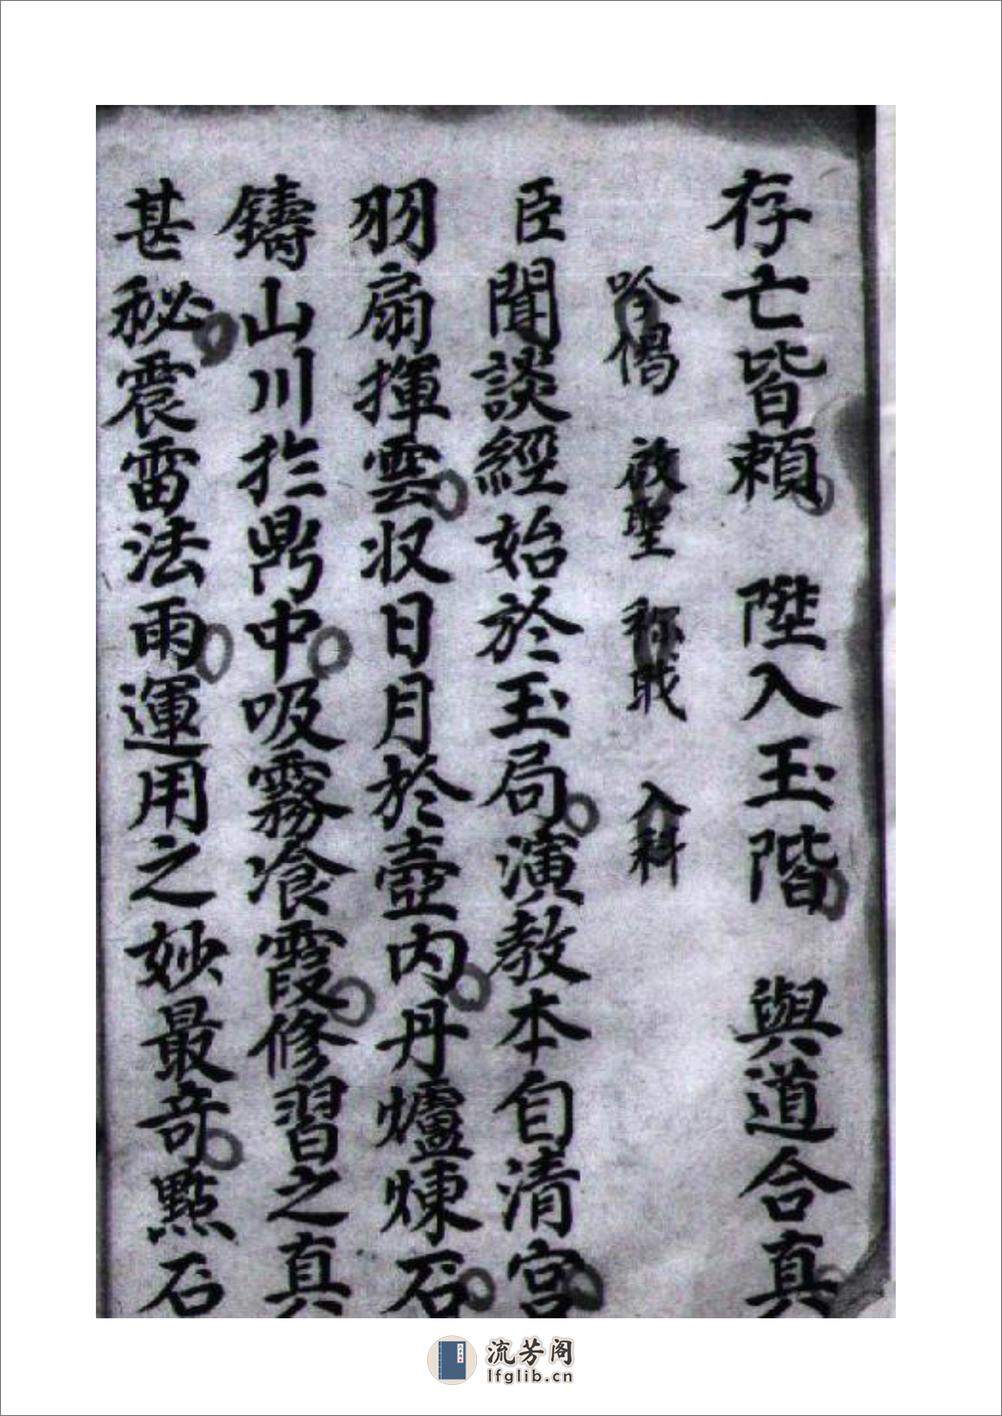 存亡皆頼 陞入玉階 與道合真
吟偈 啟聖 称职 入科
臣聞談經始於玉局演教本自清宮
羽扇揮雲収日月於壺内丹爐煉石
鑄山川扵鼎中吸霧飡霞修習之真
甚秘震雷法雨運用之妙最竒點石
流芳阁
lfglib.cn